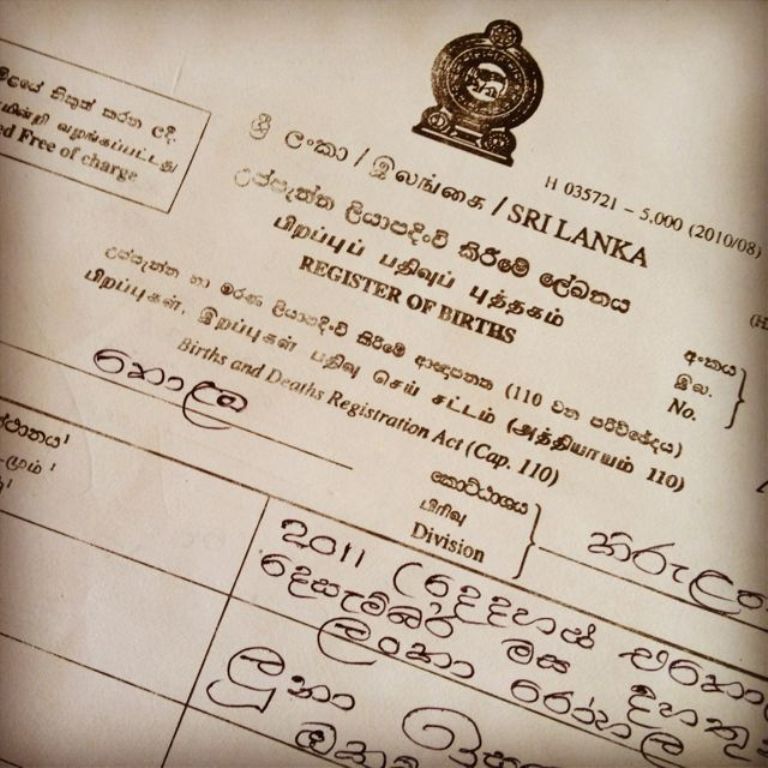 නිකුත් කරන ලදි
வழங்கப்பட்டது
Free of charge
ශ්‍රී ලංකා / இலங்கை / SRI LANKA
H 035721 – 5,000 (2010/08)
උප්පැන්න ලියාපදිංචි කිරීමේ ලේඛනය
பிறப்புப் பதிவுப் புத்தகம்
REGISTER OF BIRTHS
අංකය
இல.
No.
උප්පැන්න හා මරණ ලියාපදිංචි කිරීමේ ආඥාපනත (110 වන පරිච්ඡේදය)
பிறப்புகள், இறப்புகள் பதிவு செய் சட்டம் (அத்தியாயம் 110)
Births and Deaths Registration Act (Cap. 110)
කොළඹ
කොට්ඨාශය
பிரிவு
Division
2011 (දෙදහස්
දෙසැම්බර් මස
ලංකා රෝහල
ලූනා